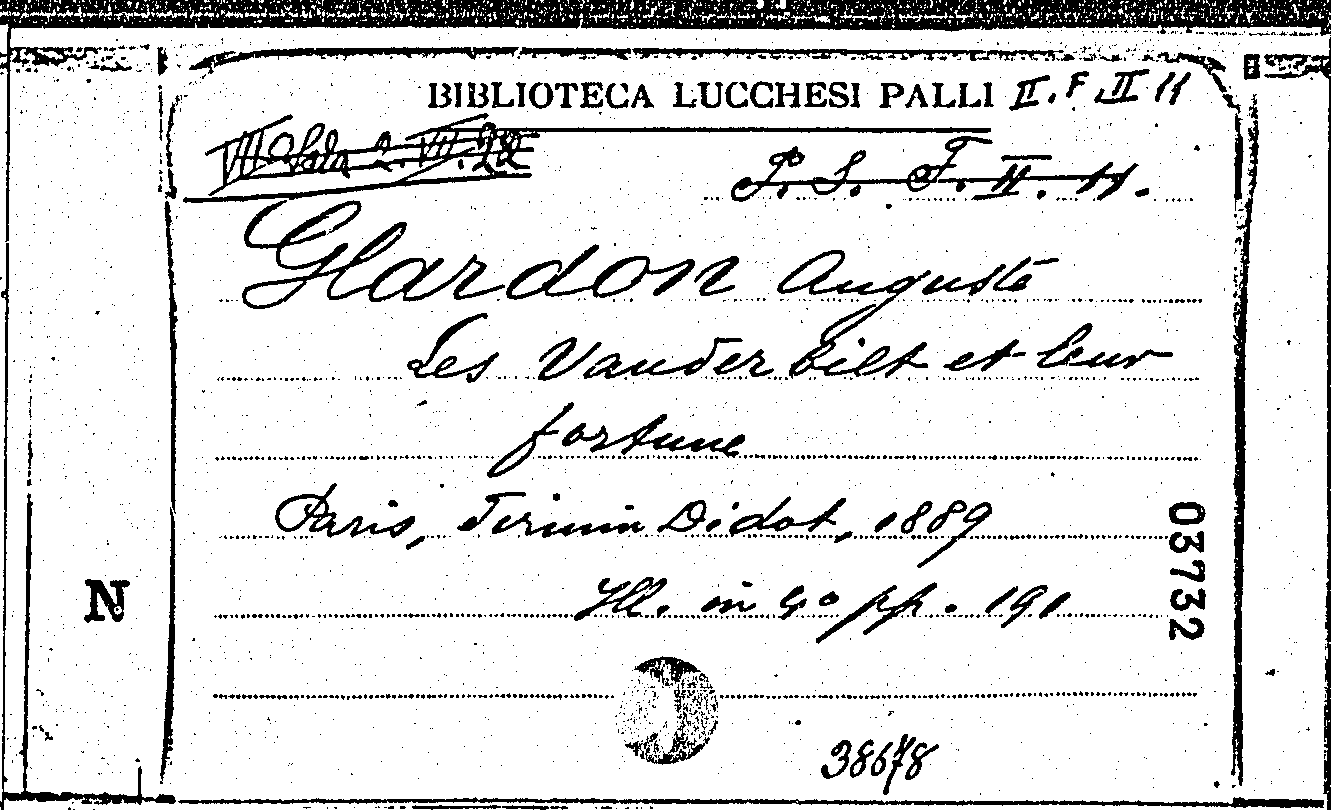 BIBLIOTECA LUCCHESI PALLI II. F. II 11
VII Sala 2. VII. 22
P. S. F. II. 11.
Glardon Auguste
Les Vanderbilt et leur
fortune
Paris, Firmin Didot, 1889
Ill. in 4° pp. 191
03732
N
38678